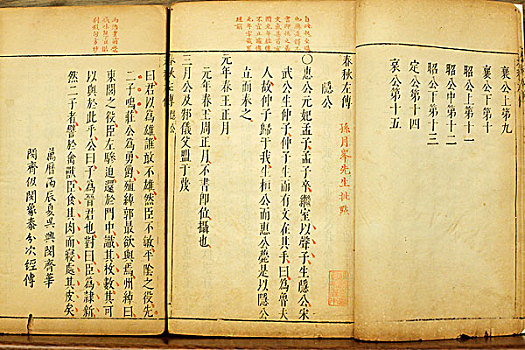 襄公上第九
襄公下第十
昭公上第十一
昭公中第十二
昭公下第十三
定公第十四
哀公第十五
春秋左傳
孫月峯先生批點
隱公
○惠公元妃孟子孟子卒繼室以聲子生隱公宋
武公生仲子仲子生而有文在其手曰爲魯夫
人故仲子歸于我生桓公而惠公薨是以隱公
立而奉之
元年春王正月
元年春王周正月不書卽位攝也
三月公及邾儀父盟于蔑
春秋左傳 隱公
曰君以爲雄誰敢不雄然臣不敏平陰之役先
二子鳴莊公爲勇爵殖綽郭最欲與焉州綽曰
東閭之役臣左驂迫還於門中識其枚數其可
以與於此乎公曰子爲晉君也對曰臣爲隸新
然二子者譬於禽獸臣食其肉而寢處其皮矣
萬曆丙辰夏吳興閔齊華
閔齊伋閔象泰分次經傳